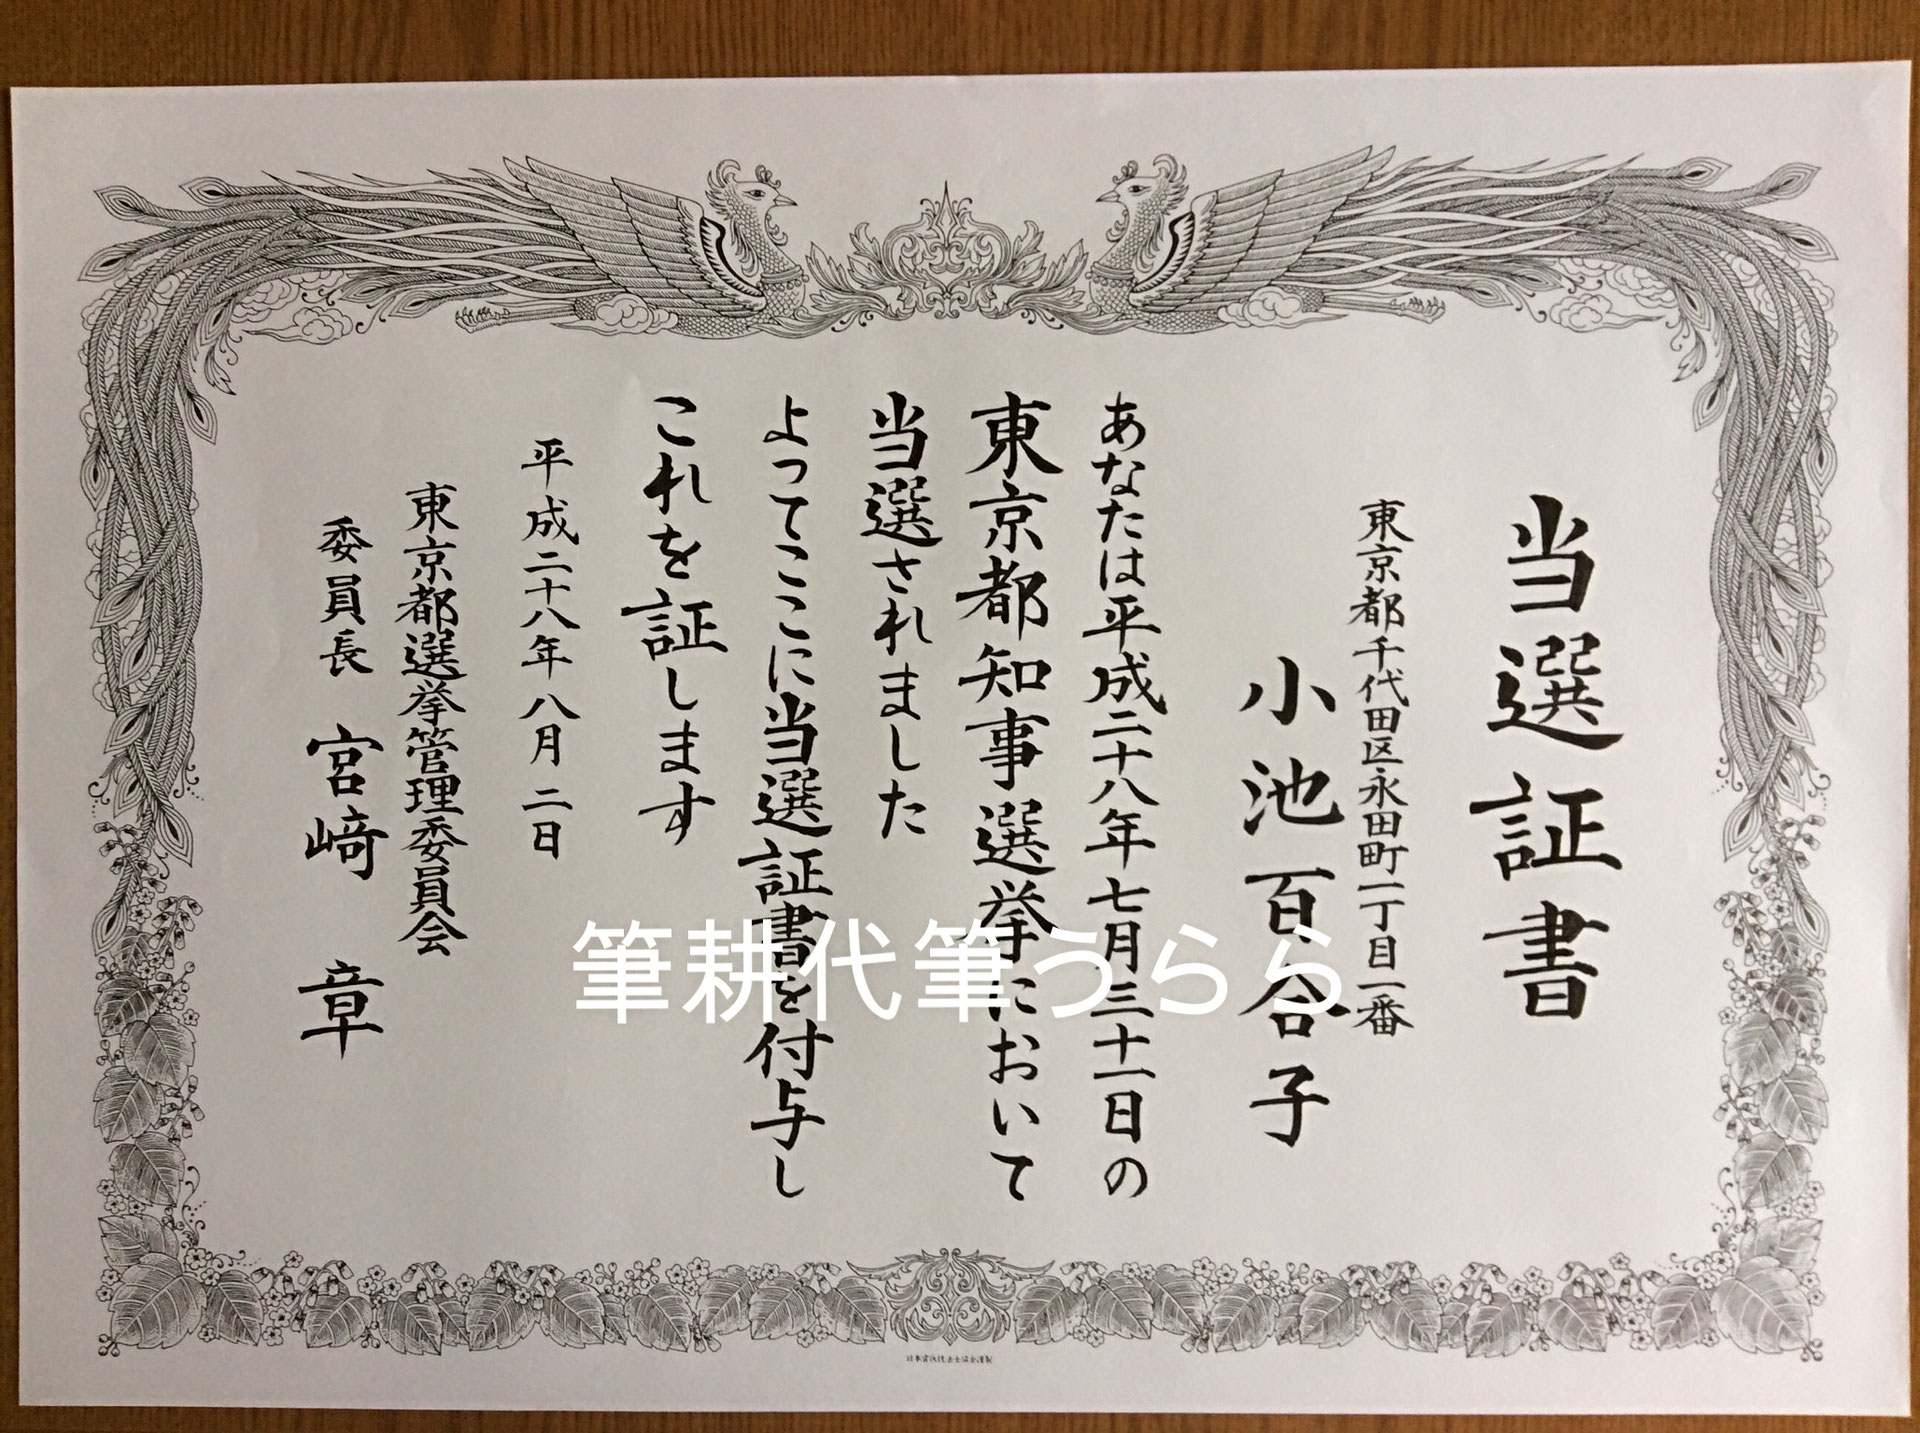 当選証書
東京都千代田区永田町一丁目一番
小池百合子
あなたは平成二十八年七月三十一日の
東京都知事選挙において
当選されました
よってここに当選証書を付与し
これを証します
平成二十八年八月二日
東京都選挙管理委員会
委員長 宮﨑 章
筆耕代筆うらら